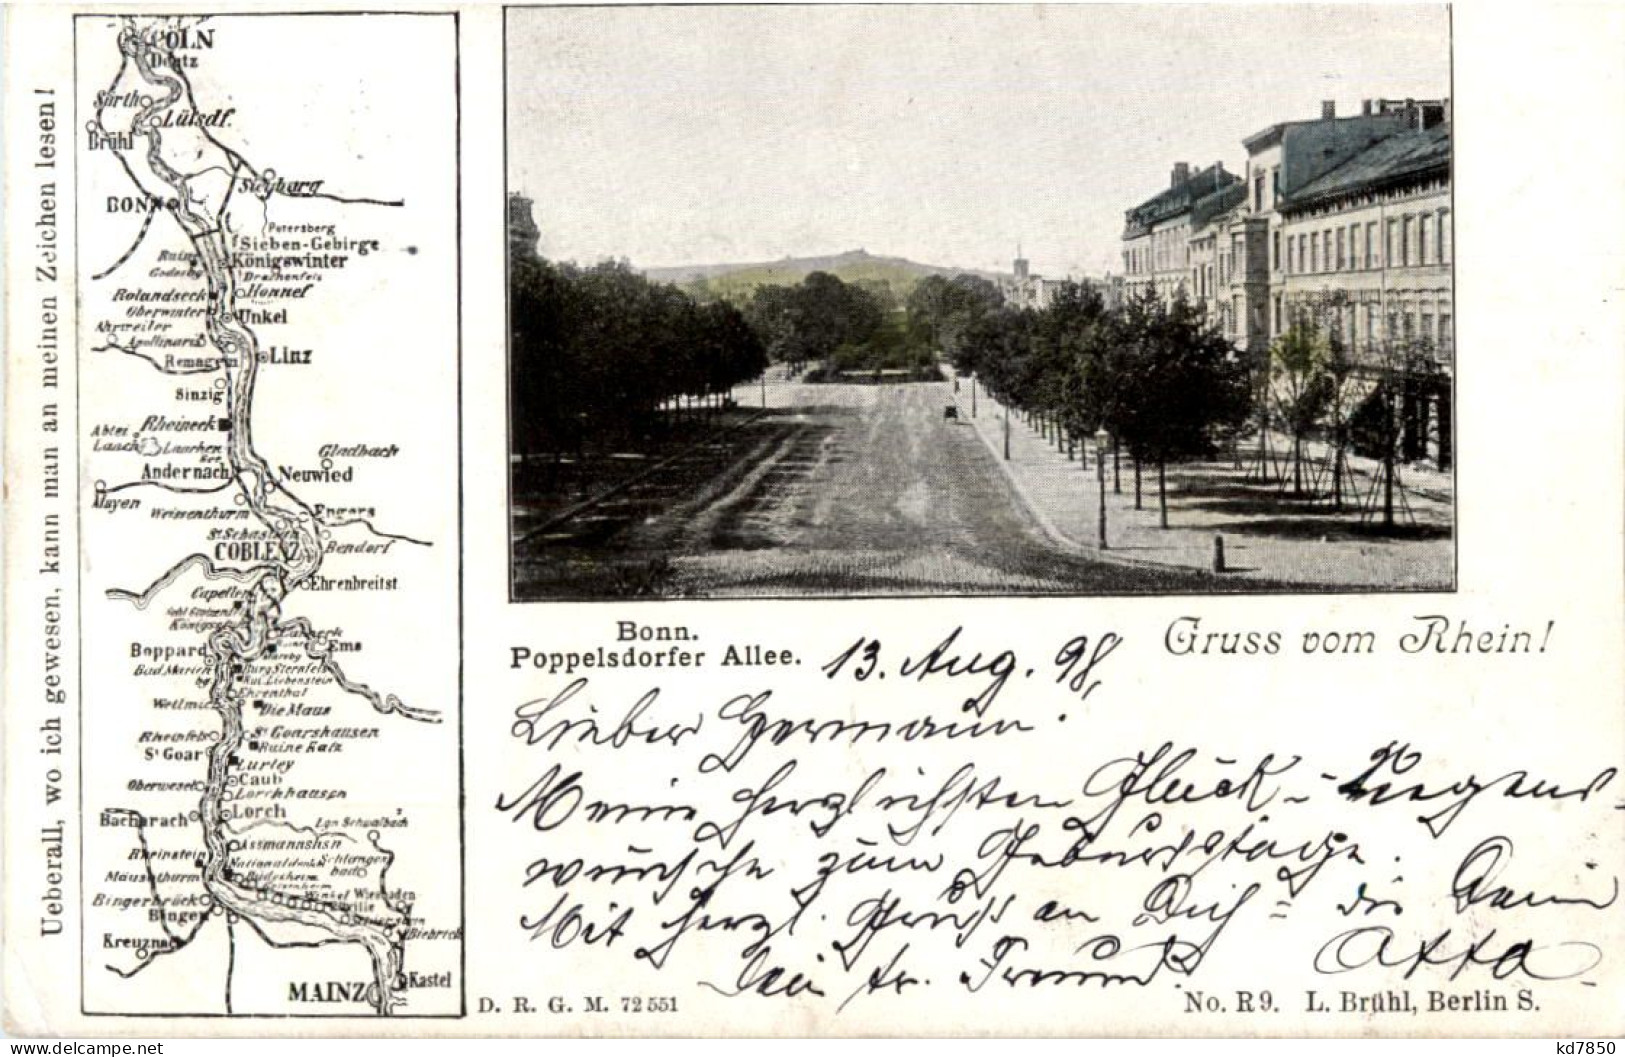 Ueberall, wo ich gewesen, kann man an meinen Zeichen lesen!
CÖLN
Deutz
Sürth
Lülsdf.
Brühl
Siegburg
BONN
Petersberg
Sieben-Gebirge
Königswinter
Ruine
Godesbg
Drachenfels
Honnef
Rolandseck
Oberwinter
Unkel
Ahrweiler
Apollinaris
Remagen
Linz
Sinzig
Rheineck
Abtei
Laach
Laacher
See
Gladbach
Andernach
Neuwied
Mayen
Weissenthurm
Engers
St Sebastian
COBLENZ
Bendorf
Ehrenbreitst.
Capellen
Königs
Lahneck
Ems
Boppard
Bad Marien
bg
Burg Sternfels
Rui. Liebenstein
Ehrenthal
Wellmich
Die Maus
Rheinfels
St Goarshausen
St Goar
Ruine Katz
Lurley
Oberwesel
Caub
Lorchhausen
Lorch
Bacharach
Lgn Schwalbach
Assmannshsn
Rheinstein
Nationaldenkm
Schlangen
bad
Mäusethurm
Rüdesheim
Geisenheim
Bingerbrück
Winkel
Wiesbaden
Bingen
Biebrich
Kreuznach
Kastel
MAINZ
Bonn.
Poppelsdorfer Allee.
Gruss vom Rhein!
13. Aug. 98,
Lieber Hermann.
Meine herzlichsten Glück- & Segens-
wünsche zum Geburtstage.
Mit herzl. Gruß an Dich = die Deinen
Dein tr. Freund
Otto
D. R. G. M. 72551
No. R9. L. Brühl, Berlin S.
www.delcampe.net
kd7850